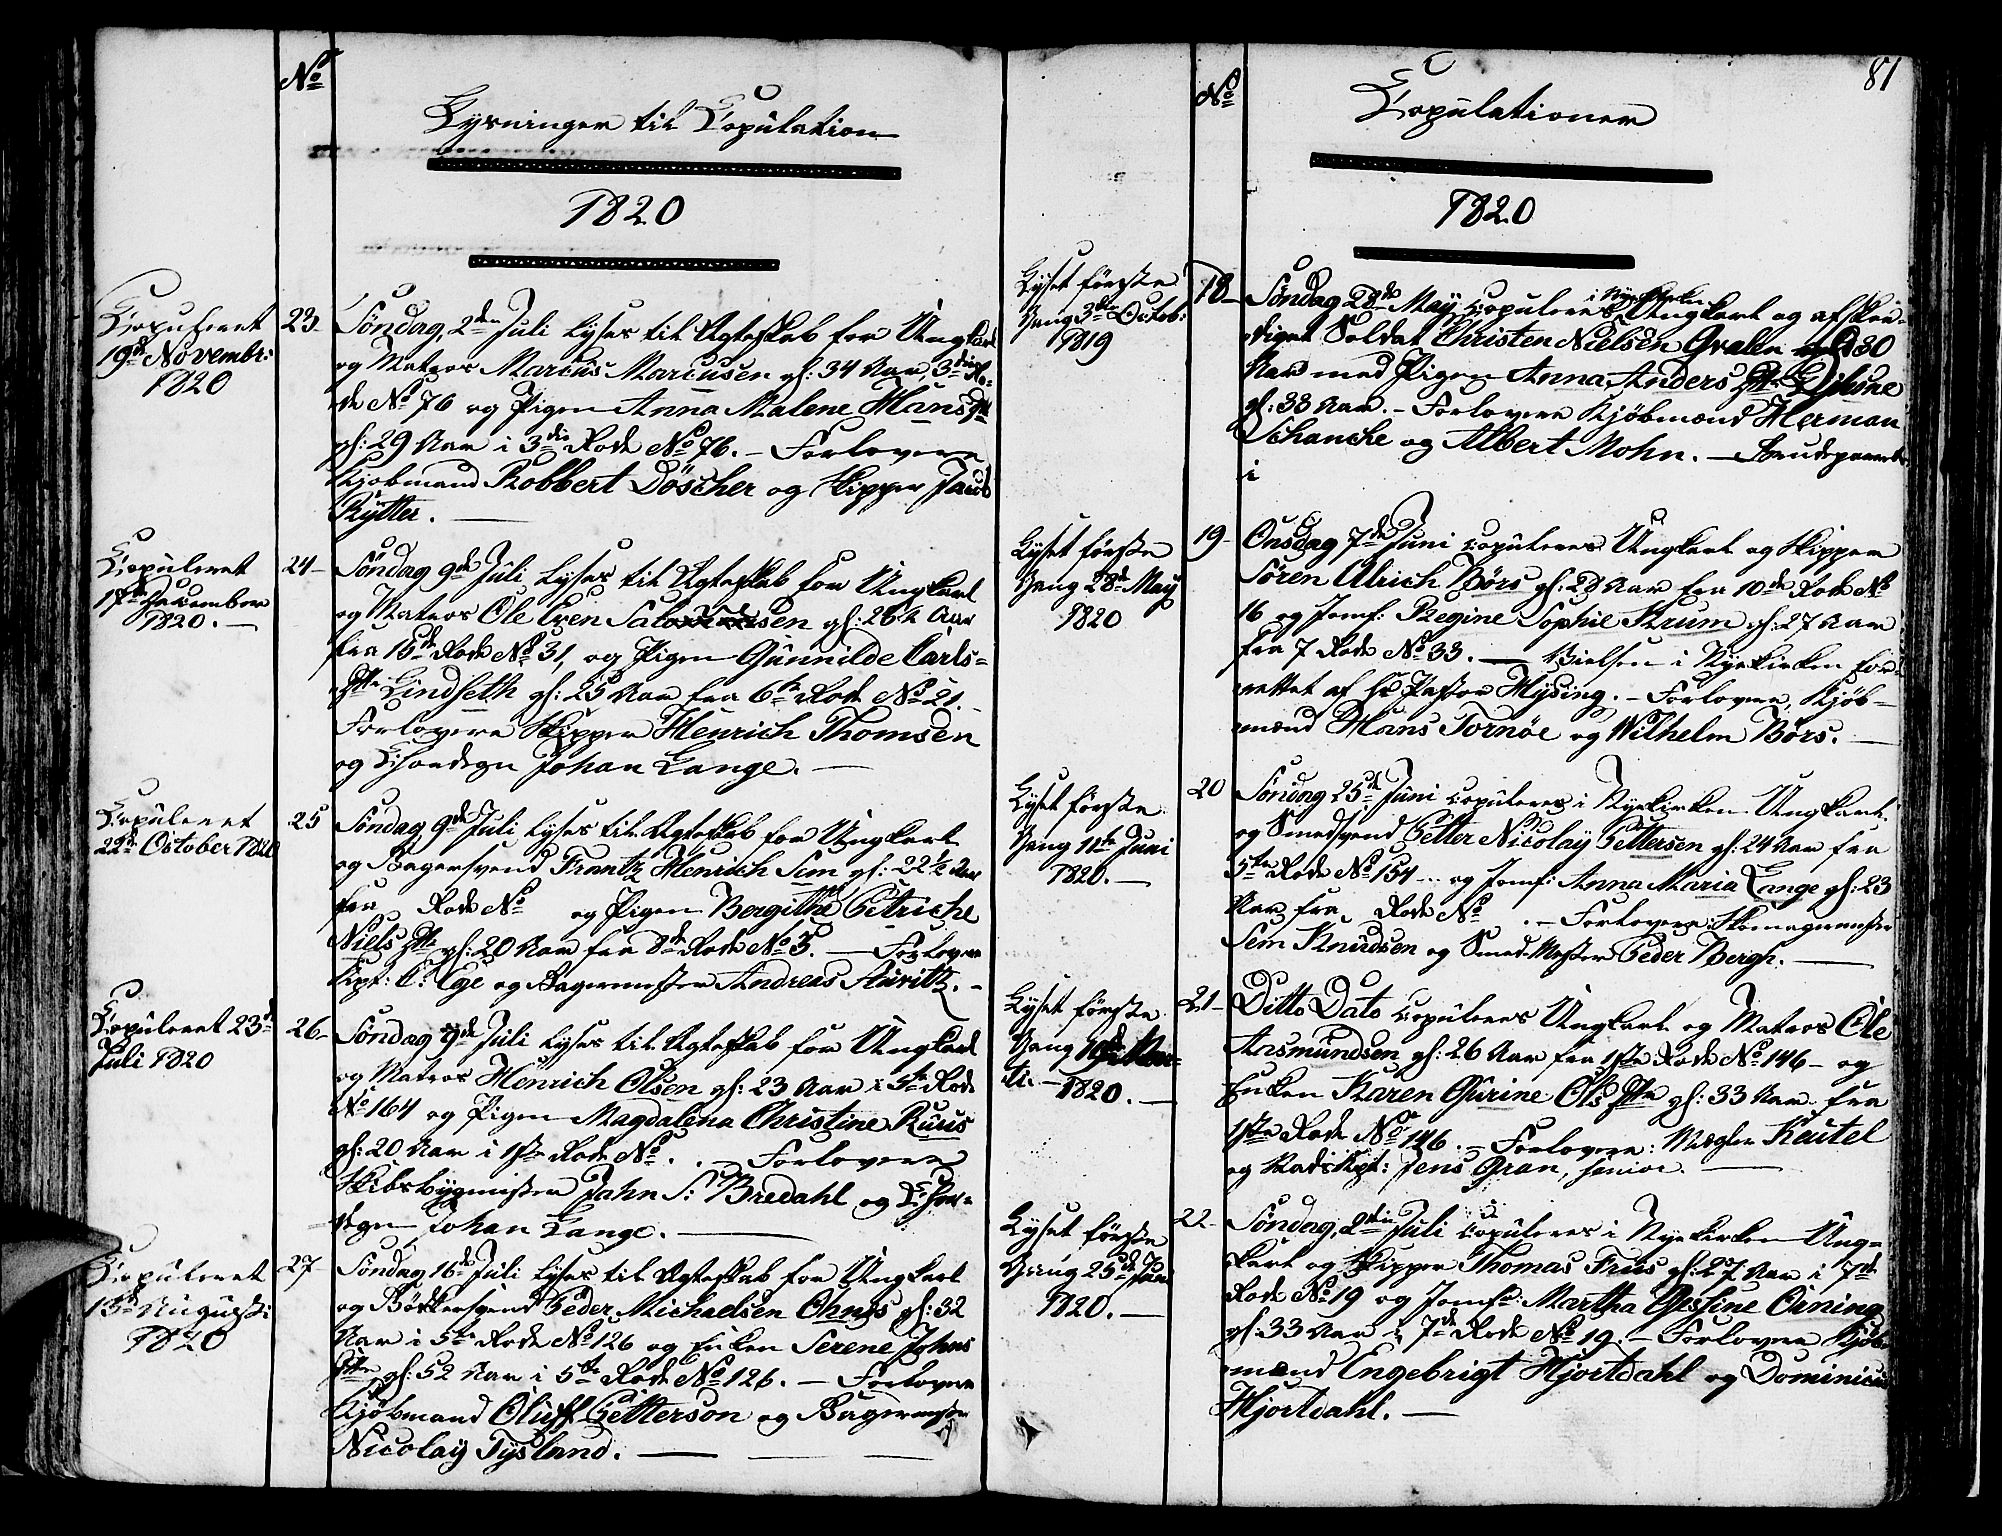 No
Lysninger til Copulation
1820
Copuleret
19de Novembr:
1820
23
Søndag, 2den Juli lyses til Ægteskab for Ungkarl
og Matros Marcus Marcusen gl: 34 Aar, 3die Ro-
de No 76 og Pigen Anna Malene Hansdtr
gl: 29 Aar i 3die Rode No 76. – Forlovere
Kjøbmand Robbert Döscher og Skipper Jacob
Rÿtter. –
Copuleret
17de December
1820. –
24 –
Søndag 9de Juli lyses til Ægteskab for Ungkarl
og Matros Ole Even gl: 26½ Aar
fra 15de Rode No 31, og Pigen Gunnilde Carls-
Dtr Lindseth gl: 25 Aar fra 6te Rode No 21. –
Forlovere Skipper Henrich Thomsen
og Johan Lange. –
Copuleret
22de October 1820
25
Søndag 9de Juli lyses til Ægteskab for Ungkarl
og Bagersvend Frantz Henrich Sem gl: 22½ Aar
fra Rode No og Pigen Bergithe Petriche
Niels Dtr gl: 20 Aar fra 8de Rode No 3. – Forlovere
Capt: C. Ege og Bagermester Andreas –
Copuleret 23de
Juli 1820
26 –
Søndag 9de Juli lyses til Ægteskab for Ungkarl
og Matros Henrich Olsen gl: 23 Aar i 5te Rode
No 164 og Pigen Magdalena Christine Ruus
gl: 20 Aar i 1ste Rode No . – Forlovere
Skibsbygmester Jahn S: Bredahl og
Johan Lange. –
Copuleret
13de August:
1820
27 –
Søndag 16de Juli lyses til Ægteskab for Ungkarl
og Bødkersvend Peder Michaelsen Ohnes gl: 32
Aar i 5te Rode No 126 og Enken Serene Johns
Dtr gl: 52 Aar i 5te Rode No 126. – Forlovere
Kjøbmand Oluff Petterson og Bagermester
Nicolaÿ Tÿsland. –
81
No
Copulationer
1820
Lyset første
Gang 3die Octob:
1819
18 –
Søndag 28de Maÿ copuleres i Nyekirken Ungkarl og afskee-
diget Soldat Christen Nielsen Gvalen gl: 30
Aar med Pigen Anna Anders Dtr
gl: 38 Aar. – Forlovere Kjøbmænd Herman
Schanche og Albert Mohn. –
i
Lyset første
Gang 28de Maÿ
1820
19 –
Onsdag 7de Juni copuleres Ungkarl og Skipper
Søren Ulrich Børs gl: 28 Aar fra 10de Rode No
16 og Jomf: Regine Sophie Krum gl: 27 Aar
fra 7 Rode No 33. – Vielsen i Nyekirken for-
rettet af Hr Pastor Mÿsing. – Forlovere, Kjøb-
mænd Hans Tornöe og Wilhelm Børs. –
Lyset første
Gang 11te Juni
1820. –
20
Søndag 25de Juni copuleres i Nyekirken Ungkarl
og Smedsvend Petter Nicolaÿ Pettersen gl: 24 Aar fra
5te Rode No 154 – og Jomf: Anna Maria Lange gl: 23
Aar fra Rode No . – Forlovere: Skomagermester
Sem Knudsen og Smed-Mester Peder Bergh. –
Lyset første
Gang
1820. –
21 –
Ditto Dato copuleres Ungkarl og Matros Ole
Aasmundsen gl: 26 Aar fra 1ste Rode No 146 – og
Enken Karen Gurine Ols Dtr gl: 33 Aar fra
1ste Rode No 146. – Forlovere: Mægler Keutel
og Jens Gran, senior. –
Lyset første
Gang 25de Juni
1820. –
22 –
Søndag, 2den Juli copuleres i Nyekirken Ung-
karl og Skipper Thomas Friis gl: 27 Aar i 7de
Rode No 19 og Jomf: Martha Gesine Örning
gl: 33 Aar i 7de Rode No 19. – Forlovere Kjøb-
mænd Engebrigt Hjortdahl og Dominicus
Hjortdahl. –